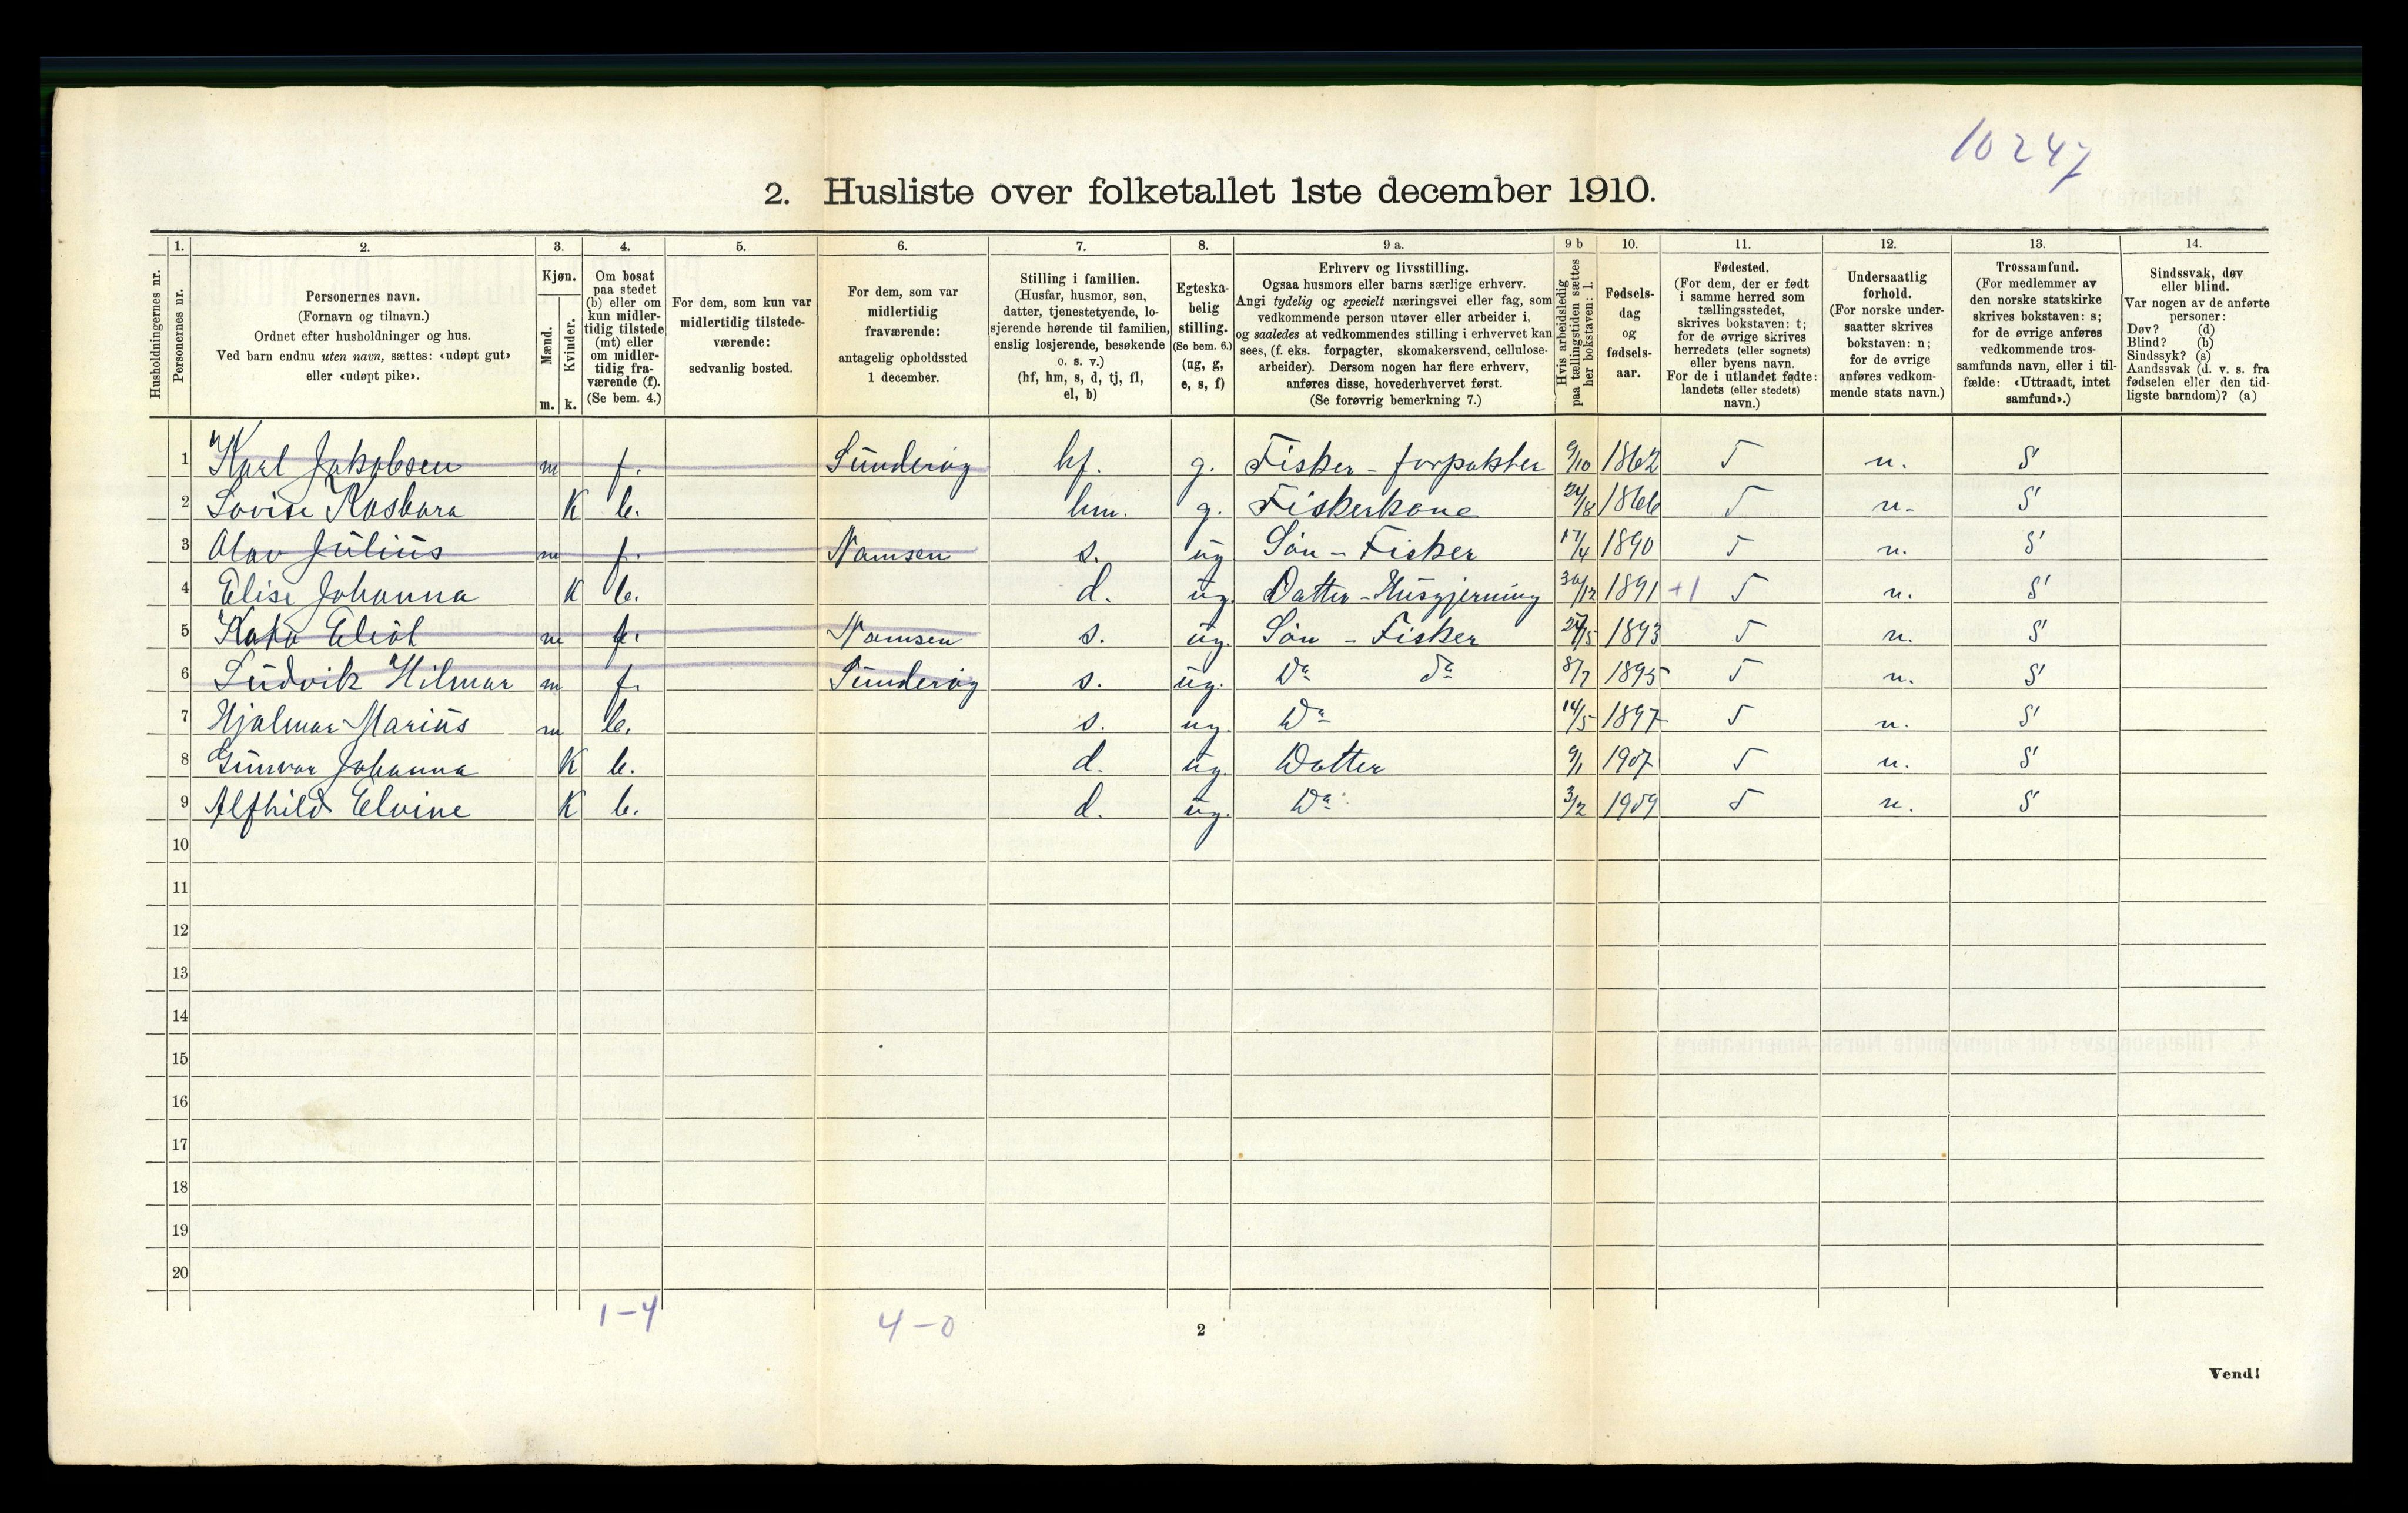 10247
2. Husliste over folketallet 1ste december 1910.
1. 2. 3. 4. 5. 6. 7. 8. 9 a. 9 b 10. 11. 12. 13. 14.
Husholdningernes nr.
Personernes nr.
Personernes navn.
(Fornavn og tilnavn.)
Ordnet efter husholdninger og hus.
Ved barn endnu uten navn, sættes: «udøpt gut»
eller «udøpt pike».
Kjøn.
Mænd.
Kvinder.
m. k.
Om bosat
paa stedet
(b) eller om
kun midler-
tidig tilstede
(mt) eller
om midler-
tidig fra-
værende (f).
(Se bem. 4.)
For dem, som kun var
midlertidig tilstede-
værende:
sedvanlig bosted.
For dem, som var
midlertidig
fraværende:
antagelig opholdssted
1 december.
Stilling i familien.
(Husfar, husmor, søn,
datter, tjenestetyende, lo-
sjerende hørende til familien,
enslig losjerende, besøkende
o. s. v.)
(hf, hm, s, d, tj, fl,
el, b)
Egteska-
belig
stilling.
(Se bem. 6.)
(ug, g,
e, s, f)
Erhverv og livsstilling.
Ogsaa husmors eller barns særlige erhverv.
Angi tydelig og specielt næringsvei eller fag, som
vedkommende person utøver eller arbeider i,
og saaledes at vedkommendes stilling i erhvervet kan
sees, (f. eks. forpagter, skomakersvend, cellulose-
arbeider). Dersom nogen har flere erhverv,
anføres disse, hovederhvervet først.
(Se forøvrig bemerkning 7.)
Hvis arbeidsledig
paa tællingstiden sættes
her bokstaven: l.
Fødsels-
dag
og
fødsels-
aar.
Fødested.
(For dem, der er født
i samme herred som
tællingsstedet,
skrives bokstaven: t;
for de øvrige skrives
herredets (eller sognets)
eller byens navn.
For de i utlandet fødte:
landets (eller stedets)
navn.)
Undersaatlig
forhold.
(For norske under-
saatter skrives
bokstaven: n;
for de øvrige
anføres vedkom-
mende stats navn.)
Trossamfund.
(For medlemmer av
den norske statskirke
skrives bokstaven: s;
for de øvrige anføres
vedkommende tros-
samfunds navn, eller i til-
fælde: «Uttraadt, intet
samfund».)
Sindssvak, døv
eller blind.
Var nogen av de anførte
personer:
Døv? (d)
Blind? (b)
Sindssyk? (s)
Aandssvak (d. v. s. fra
fødselen eller den tid-
ligste barndom)? (a)
1 Karl Jakobsen m f. Sunderøy hf. g. Fisker - forpakter 9/10 1862 T n. S
2 Lovise Kasbara K b. hm. g. Fiskerkone 24/8 1866 T n. S
3 Olav Julius m f. Namsen s. ug Søn - Fisker 17/4 1890 T n. S
4 Elise Johanna K b. d. ug. Datter - Husgjerning 30/12 1891 +1 T n. S
5 Eliot m f. Namsen s. ug. Søn - Fisker 27/5 1893 T n. S
6 Ludvik Hilmar m f. Sunderøy s. ug. Do do 8/7 1895 T n. S
7 Hjalmar Marius m b. s. ug. Do 14/5 1897 T n. S
8 Gunvor Johanna K b. d. ug. Datter 9/1 1907 T n. S
9 Alfhild Elvine K b. d. ug. Do 3/2 1909 T n. S
10
11
12
13
14
15
16
17
18
19
20
1-4 4-0
2
Vend!